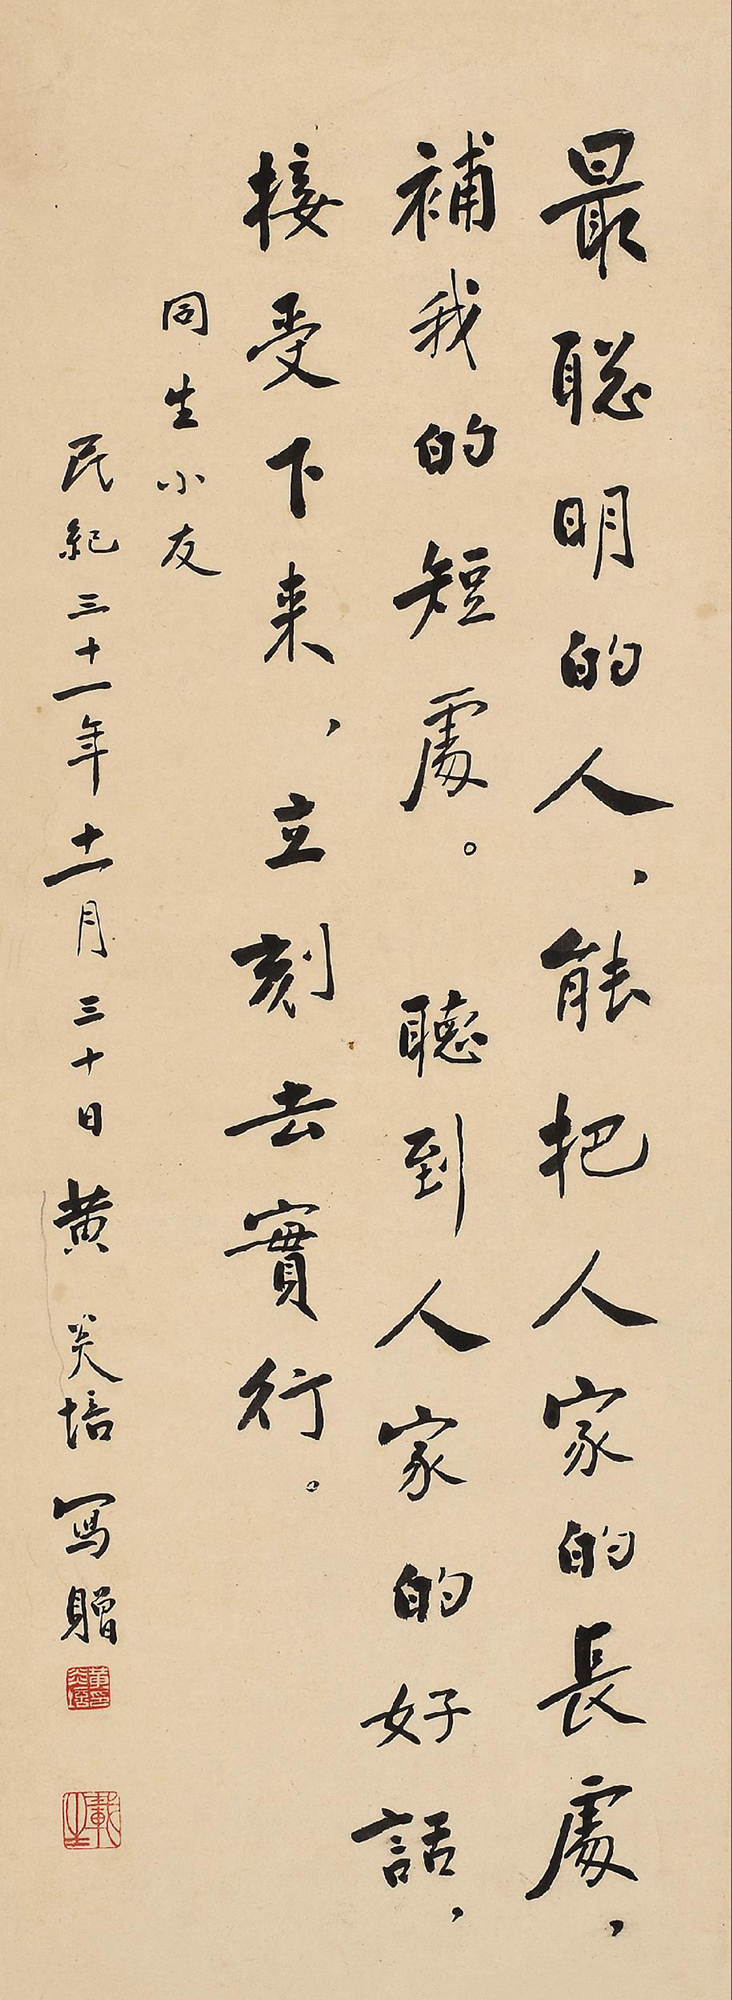 最聪明的人、能把人家的長處，
補我的短處。聽到人家的好話，
接受下来、立刻去實行。
同生小友
民紀三十一年十一月三十日黄炎培寫贈
黄炎培印